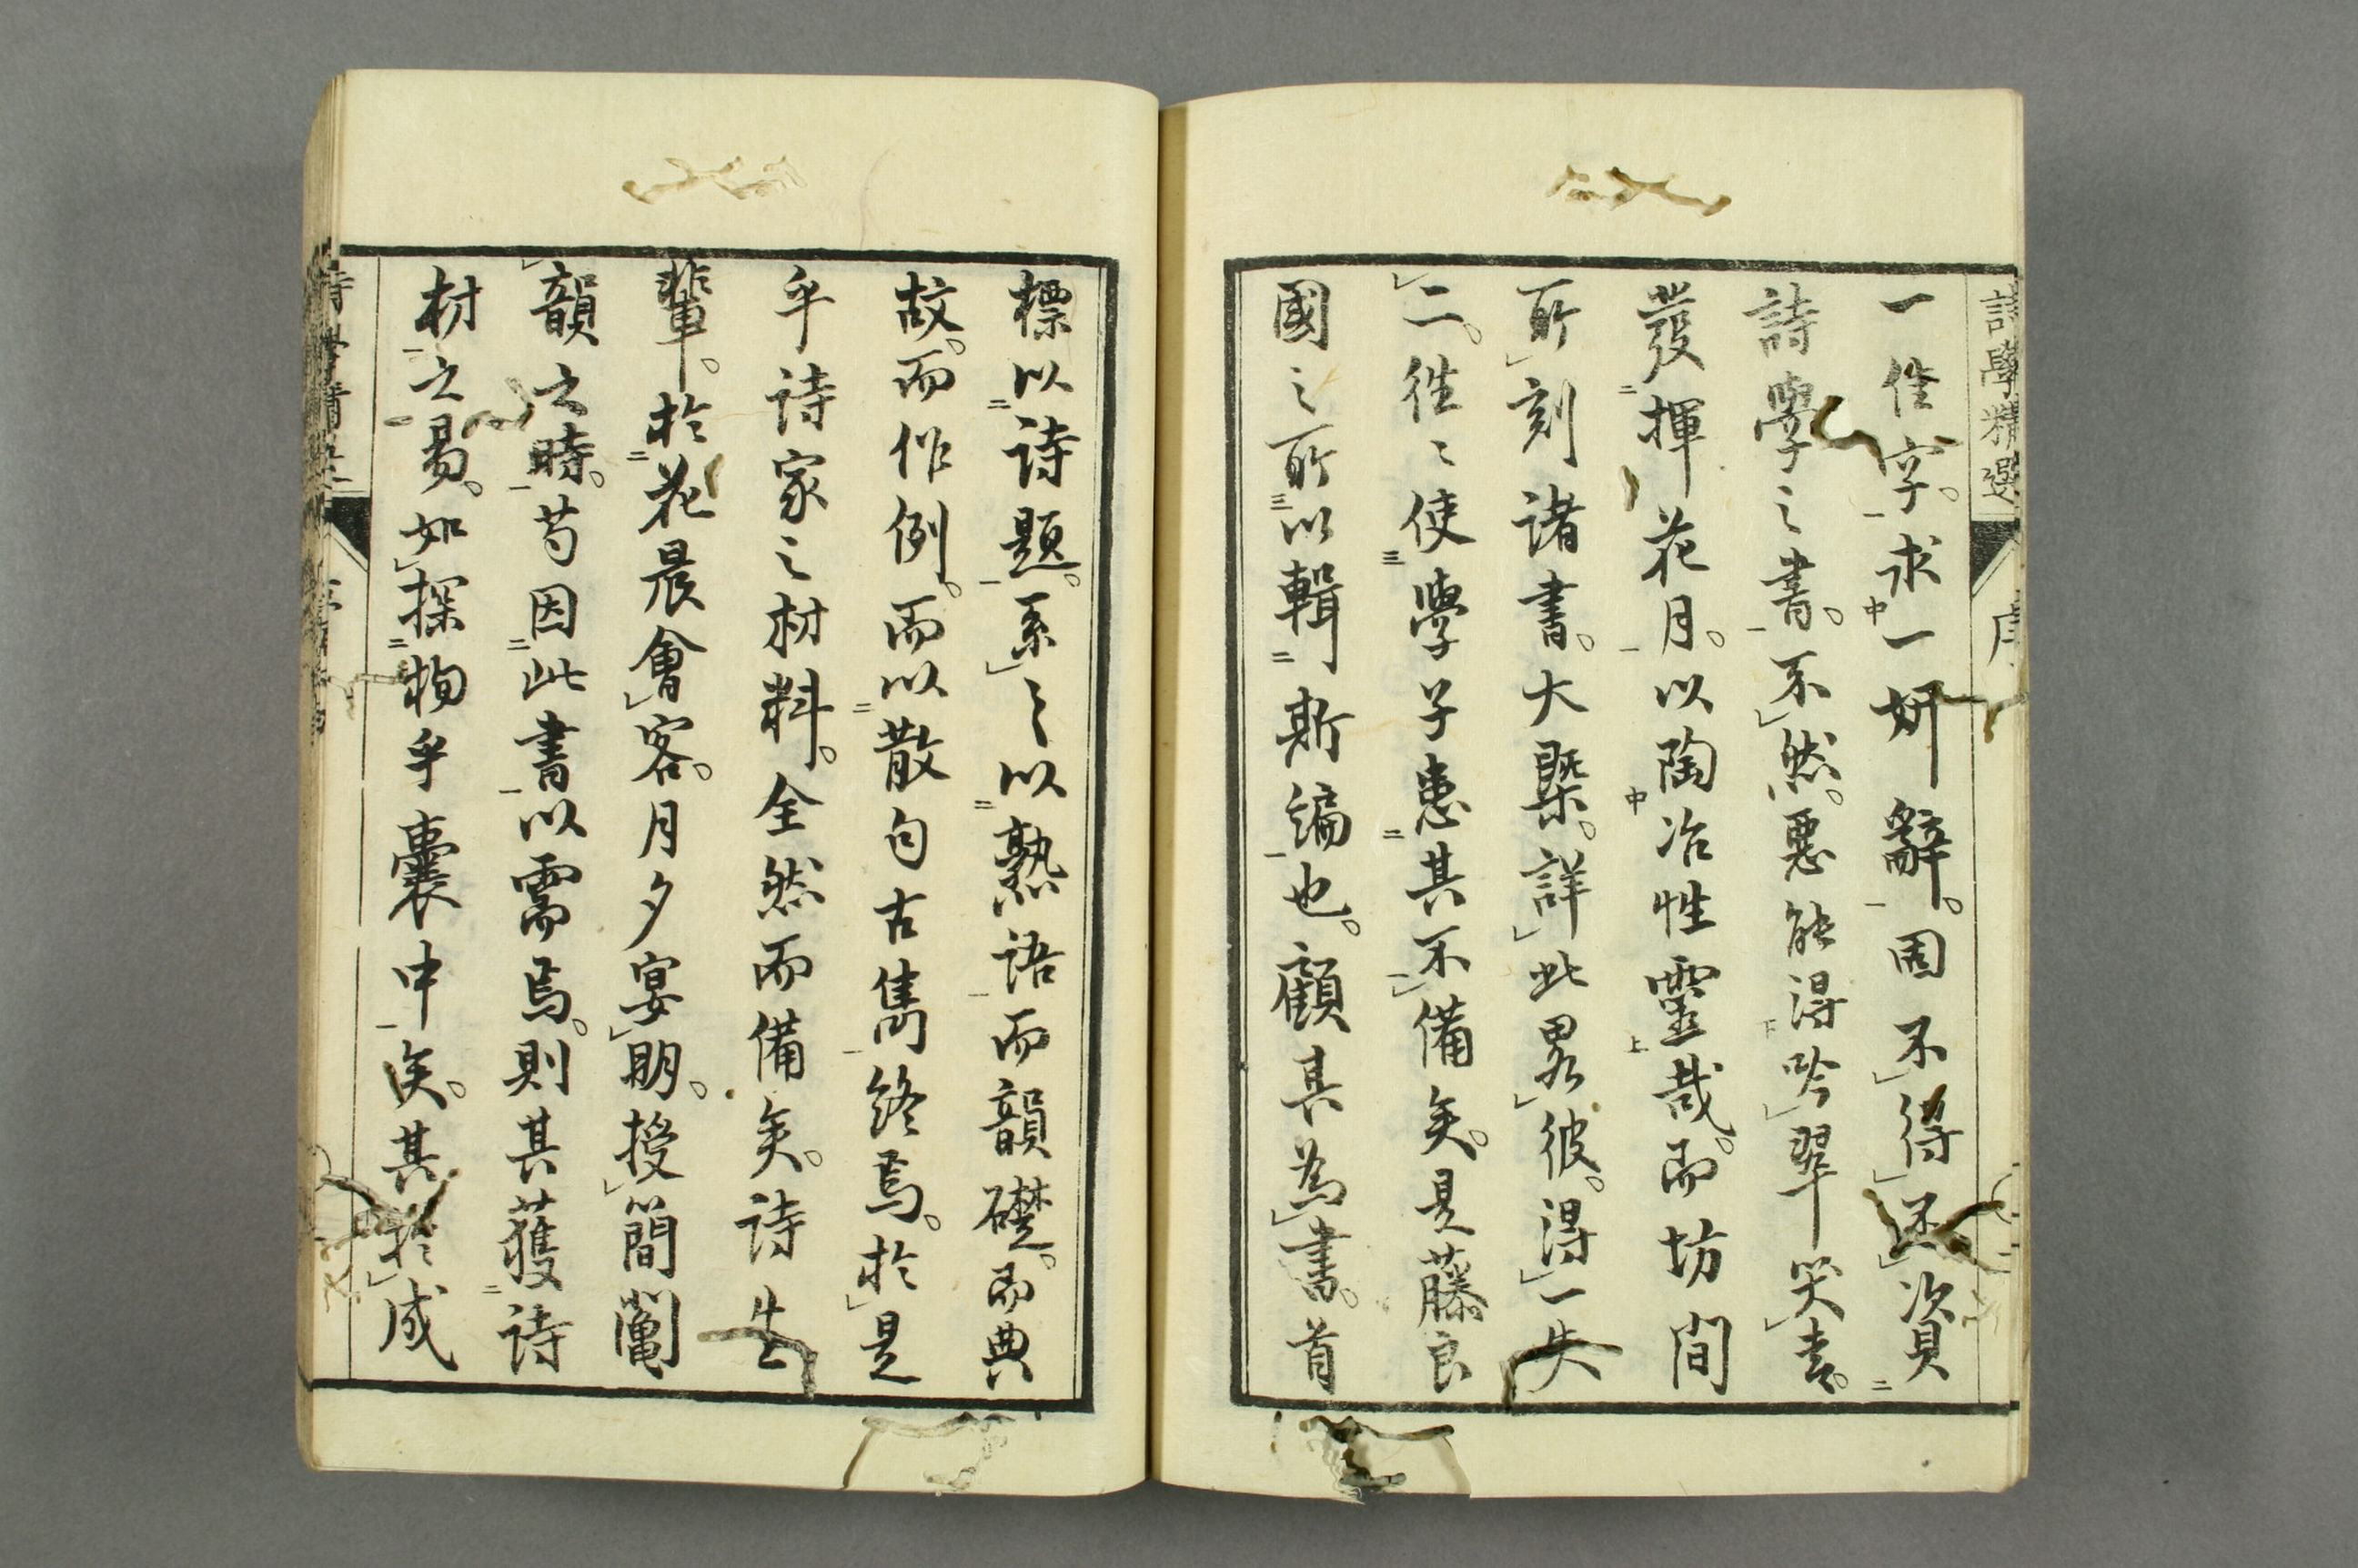 詩學精選 序
一佳字。求一妍辭。固不得不資
詩學之書。不然。悪能得吟翠哭青。
發揮花月。以陶冶性靈哉。而坊間
所刻諸書。大槩。詳此畧彼。得一失
二。徃〻使學子患其不備矣。是藤良
國之所以輯斯編也。顧其為書。首
標以诗題。系之以熟语而韻礎。而典
故。而作例。而以散句古雋終焉。於是
乎诗家之材料。全然而備矣。诗生
輩。於花晨會客。月夕宴朋。授簡鬮
韻之時。苟因此書以需焉。則其獲诗
材之易。如探物乎囊中矣。其於成